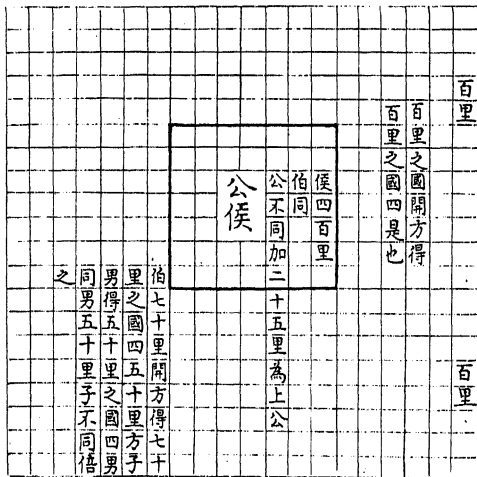 百里
百里
百里之國開方得
百里之國四是也
侯四百里
伯同
公不同加二十五里為上公
公侯
伯七十里開方得七十
里之國四五十里方子
男得五十里之國四男
同男五十里子不同倍
之